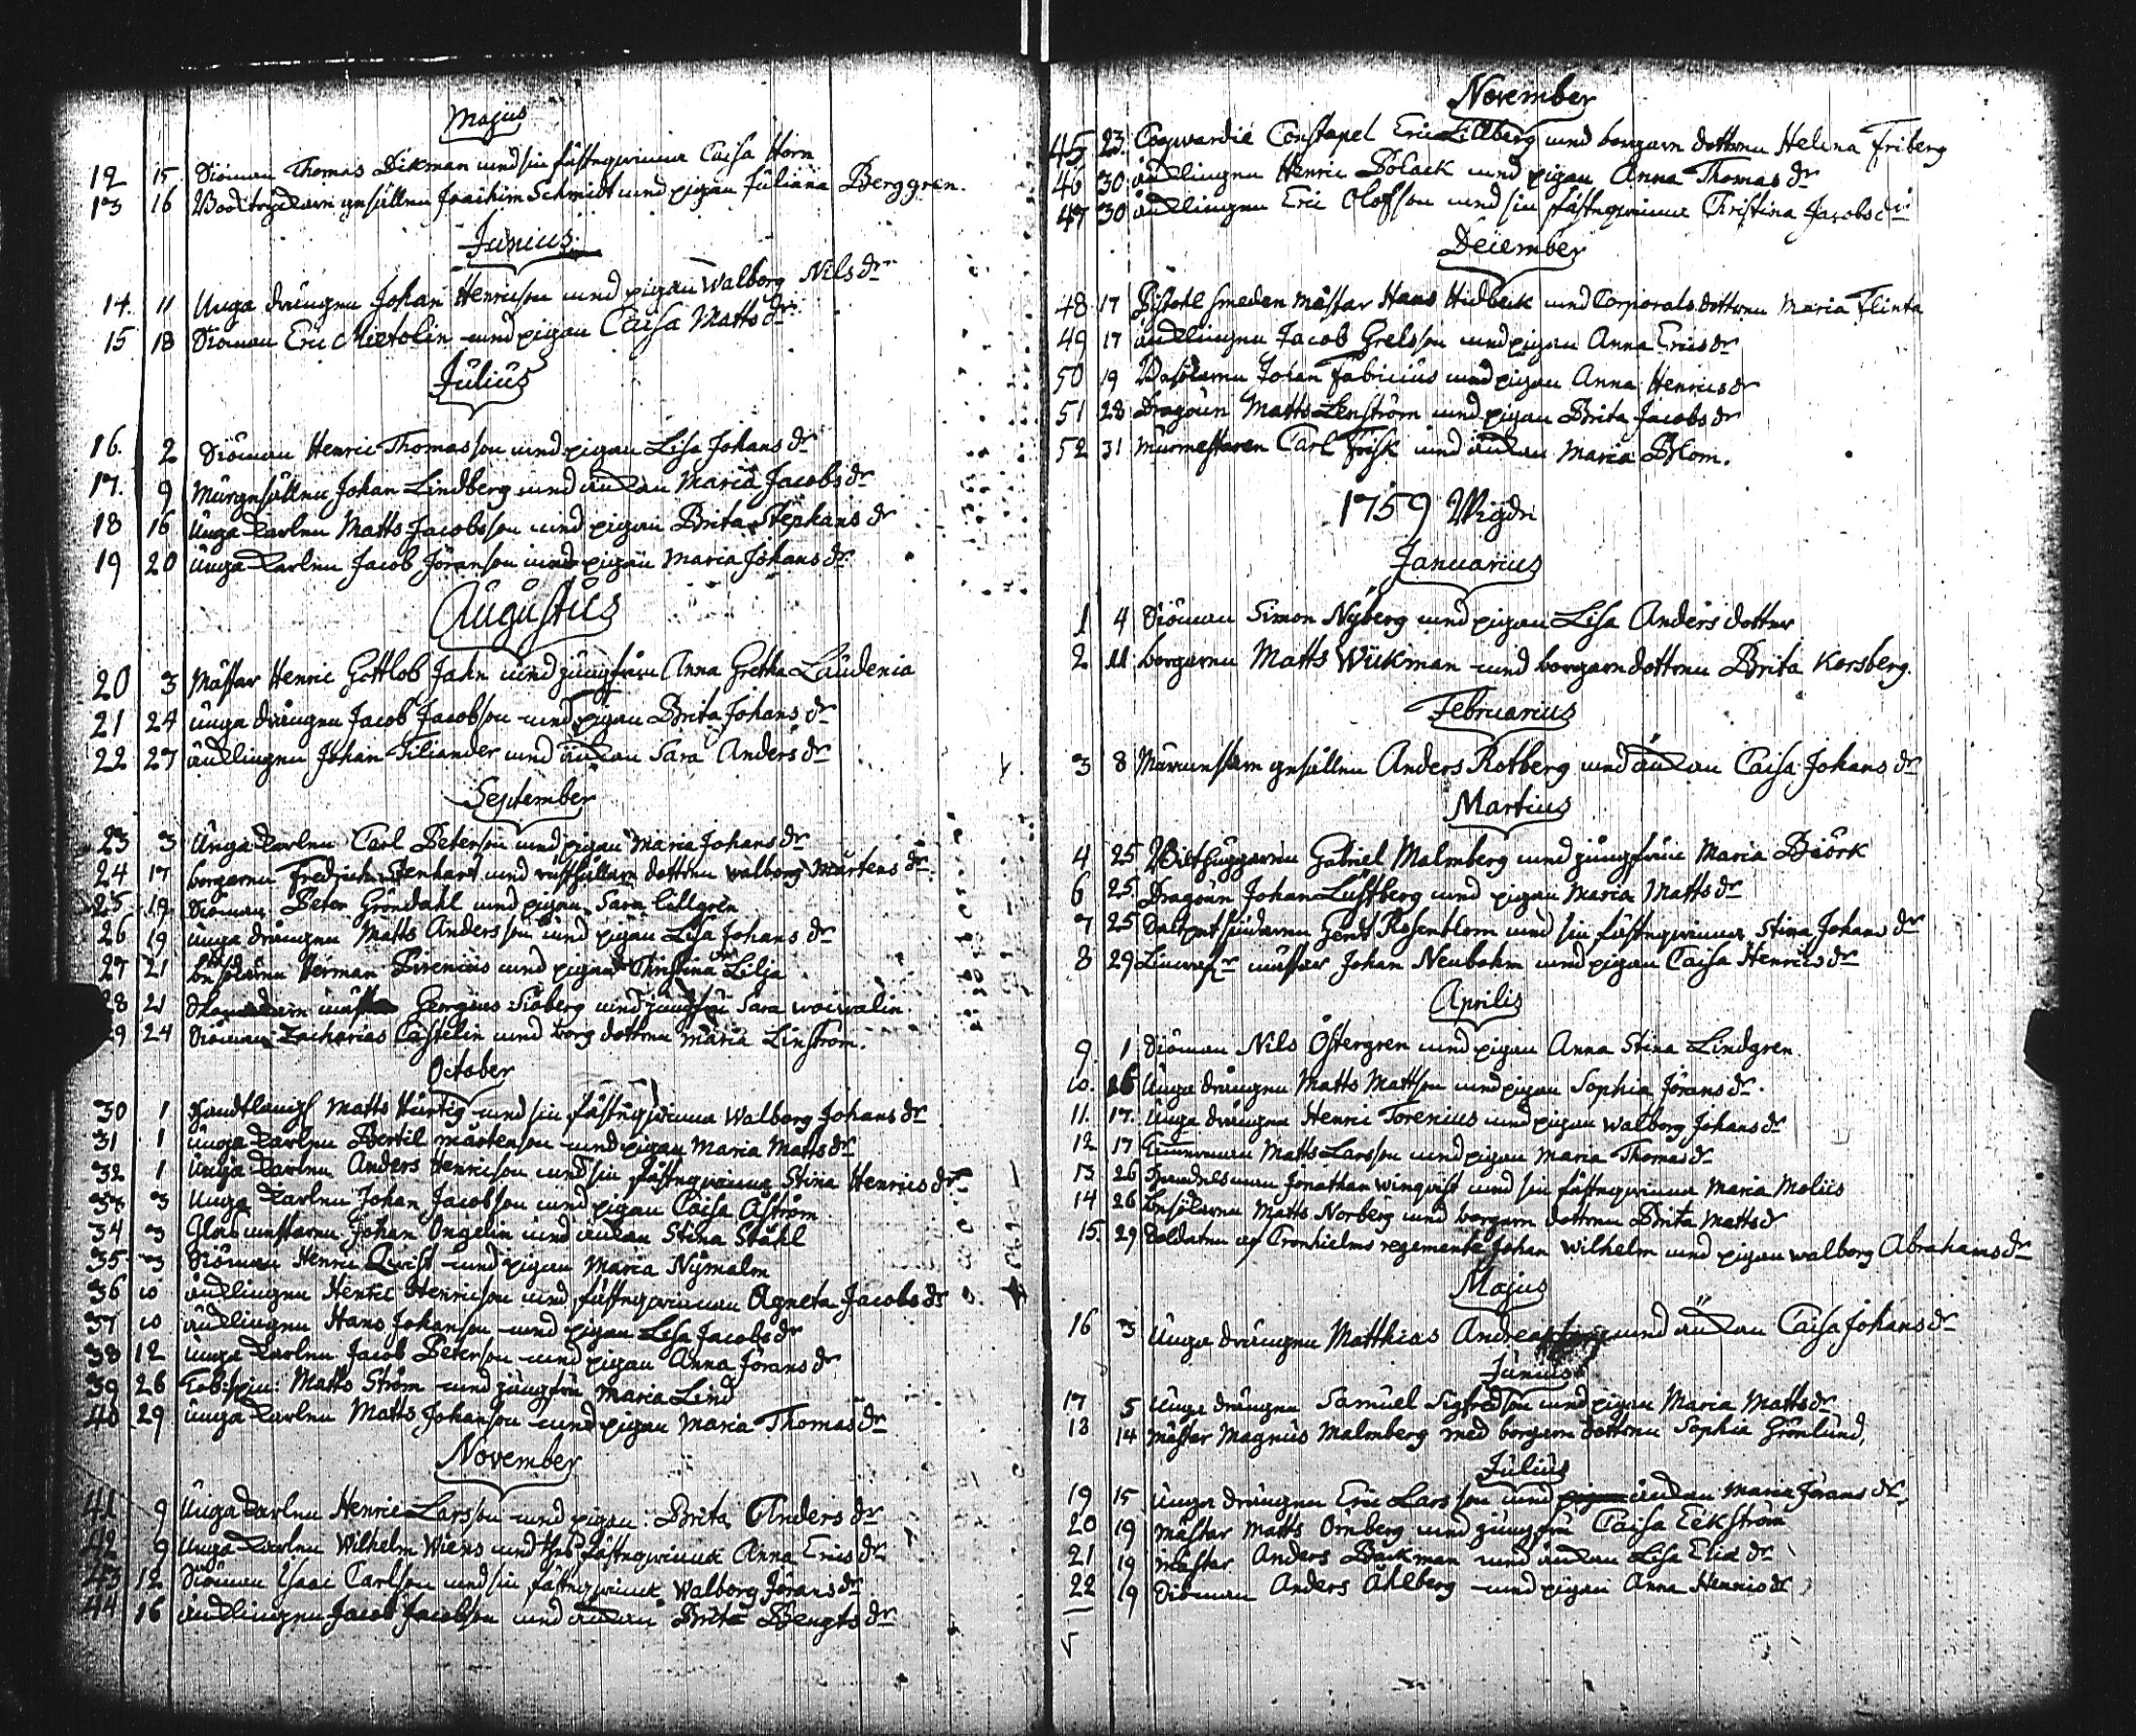 Majus
12 15 Siöman Thomas Dikman med sin fästeqvinna Caisa Horn
13 16 gesällen Joachim Schmidt med pigan Juliana Berggren.
Junius
14. 11 Unga drängen Johan Henricson med pigan Walborg Nils dr
15 18 Siöman Eric Mietolin med pigan Caisa Matts dr
Julius
16. 2 Siöman Henric Thomasson med pigan Lisa Johans dr
17. 9 Murgesällen Johan Lindberg med änkan Maria Jacobs dr
18 16 Unga karlen Matts Jacobsson med pigan Brita Stephans dr
19 20 Unga karlen Jacob Jöranson med pigan Maria Johans dr
Augustus
20 3 Mästar Henric Gottlob Jahn med jungfrun Anna Gretha Laudenia
21 24 Unga drängen Jacob Jacobson med pigan Brita Johans dr
22 27 änklingen Johan Filiander med änkan Sara Anders dr
September
23 3 Unga karlen Carl Peterson med pigan Maria Johans dr
24 17 borgaren Fredrich Stenhard med rusthållare dottren Walborg Mårtens dr.
25 19 Siöman Peter Gröndahl med pigan Sara Lillgren
26 19 unga drängen Matts Andersson med pigan Lisa Johans dr
27 21 besökaren Herman Pirenius med pigan Christina Lilja
28 21 Georgius Siöberg med jungfru Sara woiwalin
29 24 Siöman Zacharias Castelin med borg dottren Maria Linström.
October
30 1 Handtlang Matts Hurtig med sin fästeqvinna Walborg Johans dr
31 1 Unga karlen Bertil mårtenson med pigan Maria Matts dr
32 1 Unga karlen Anders Henricson med sin fästeqvinna Stina Henrics dr
33 3 Unga karlen Johan Jacobson med pigan Caisa Åström
34 3 Glas mästaren Johan Ongelin med änkan Stina Ståhl
35 3 Siöman Henric Qvist med pigan Maria Nymalm
36 10 änklingen Henric Henricson med fästeqvinnan Agneta Jacobs dr
37 10 änklingen Hans Johanson med pigan Lisa Jacobs dr
38 12 Unga karlen Jacob Peterson med pigan Anna Jörans dr
39 26 Tob:spin: Matts Ström med jungfru Maria Lind
40 29 unga karlen Matts Johanson med pigan Maria Thomas dr
November
41 9 Unga karlen Henric Larsson med pigan Brita Anders dr
42 9 Unga karlen Wilhelm Wiens med fästeqvinna Anna Erics dr
43 12 Siöman Isaac Carlson med sin fästeqvinna Walborg Jörans dr
44 16 änklingen Jacob Jacobson med änkan Brita Bengts dr
November
45 23. Coopvardie Constapel Eric Lillberg med borgare dottren Helena Friberg
46 30 änklingen Henric Polack med pigan Anna Thomas dr
47 30 änklingen Eric Olofson med sin fästeqvinna Christina Jacobs dr
December
48 17 Pistohl smeden Mästar Hans Hidbeck med Corporals dottren Maria Flinta
49 17 änklingen Jacob Grelsson med pigan Anna Erics dr
50 19 Besökaren Johan Fabricius med pigan Anna Henrics dr
51 28 Dragoun Matts Lenström med pigan Brita Jacobs dr
52 31 Murmestaren Carl Frisk med änkan Maria Blom.
1759 Wigde
Januarius
1 4 Siöman Simon Nyberg med pigan Lisa Anders dotter
2 11 borgaren Matts Wiikman med borgare dottren Brita Korsberg.
Februarius
3 8 gesällen Anders Rotberg med änkan Caisa Johans dr
Martius
4 25 Bilthuggaren Gabriel Malmberg med jungfrun Maria Biörk
6 25. Dragoun Johan Lustberg med pigan Maria Matts dr
7 25 Rosenblom med sin fästeqvinna Stina Johans dr
8 29 mästar Johan Neubohm med pigan Caisa Henrics dr
Aprilis
9. 1 Siöman Nils Östergren med pigan Anna Stina Lindgren
10. 16 Unga drängen Matts Mattson med pigan Sophia Jörans dr.
11. 17. Unga drängen Henric Torenius med pigan Walborg Johans dr
12 17 Timmerman Matts Larsson med pigan Maria Thomas dr
13 26 Handelsman Jonathan Winqvist med sin fästeqvinna Maria Moliis
14 26 besökaren Matts Norberg med borgare dottren Brita Matts dr
15. 29 Soldaten af Cronhielms regemente Johan Wilhelm med pigan Walborg Abrahams dr
Majus
16 3 Unga drängen Matthias med änkan Caisa Johans dr
Junius
17 5 Unga drängen Samuel Sigfredson med pigan Maria Matts dr
18 14 Mästar Magnus Malmberg med borgare dottren Sophia Grönlund,
Julius
19 15 Unga drängen Eric Larsson med änkan Maria Jörans dr
20 19 Mästar Matts Örnberg med jungfru Caisa Eckström
21 19 Mästar Anders Backman med änkan Lisa Eliæ dr
22 19 Siöman Anders Åhlberg med pigan Anna Henrics dr